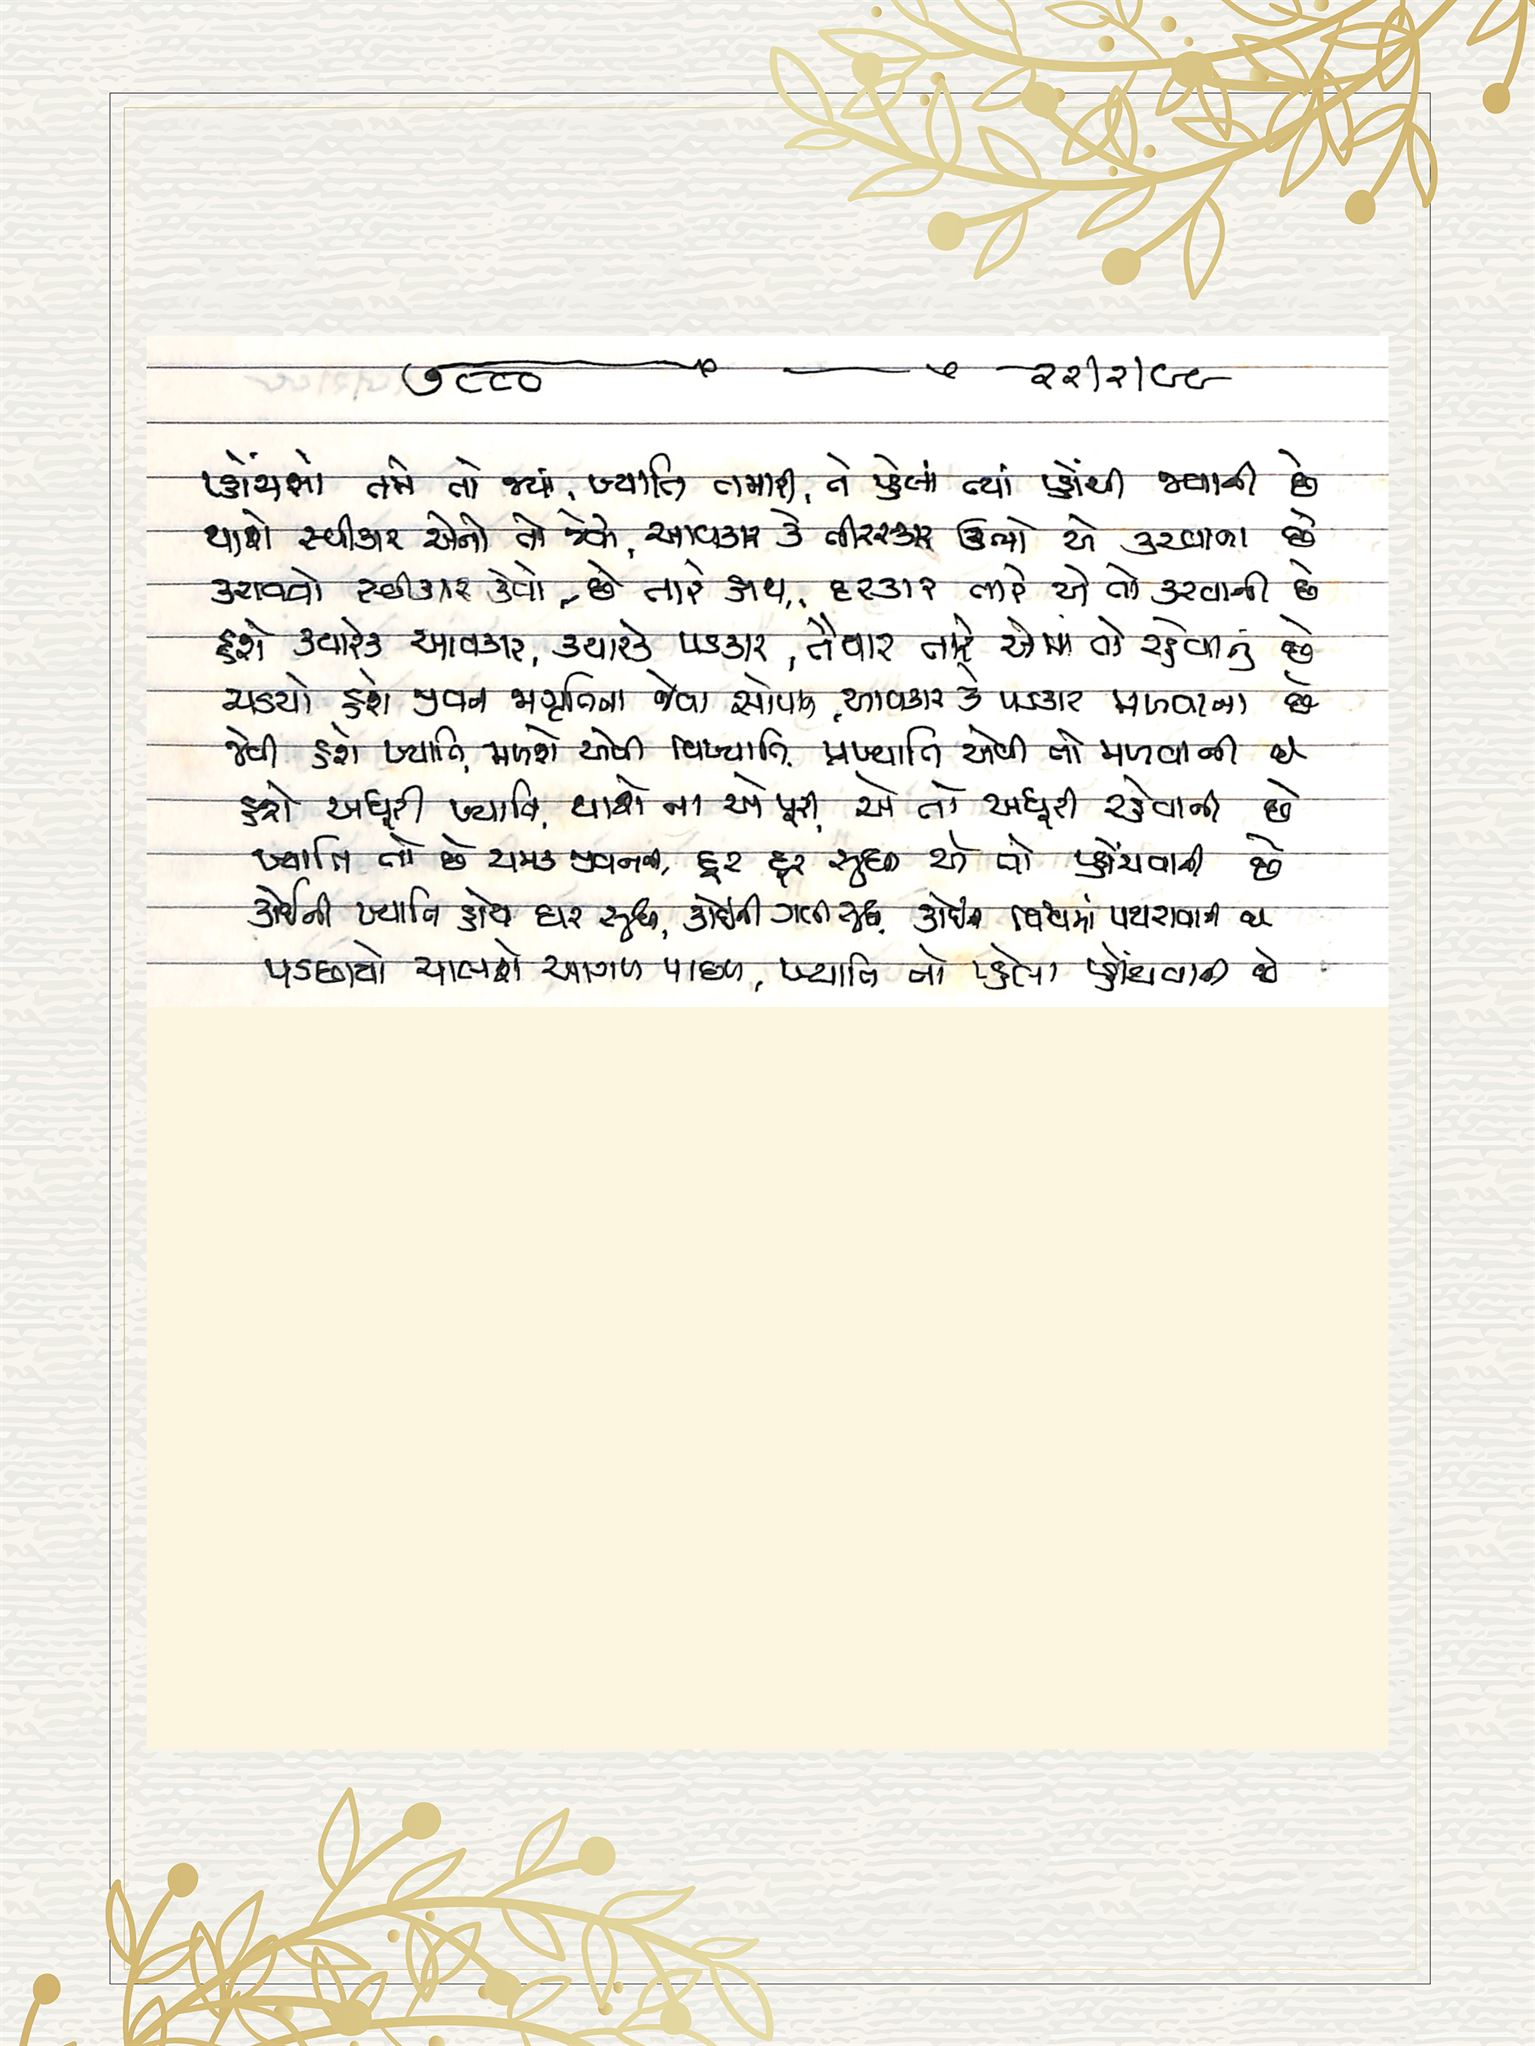 ૭૮૮૦ ૨૨/૨/૯૯
પ્હોંચશો તમે તો જ્યાં, ખ્યાતિ તમારી, તે પ્હેલાં ત્યાં પ્હોંચી જવાની છે
થાશે સ્વીકાર એનો તો કેવો, આવકાર કે તીરસ્કાર ઊભો એ કરવાના છે
કરાવવો સ્વીકાર કેવો, છે તારે હાથ, દરકાર તારે એ તો કરવાની છે
હશે ક્યારેક આવકાર, ક્યારેક પડકાર, તૈયાર તારે એમાં તો રહેવાનું છે
ચડયો હશે જીવન જાગૃતિના જેવા સોપાન, આવકાર કે પડકાર મળવાના છે
જેવી હશે ખ્યાતિ, મળશે એવી વિખ્યાતિ, પ્રખ્યાતિ એવી તો મળવાની છે
હશે અધૂરી ખ્યાતિ, થાશે ના એ પૂરી, એ તો અધૂરી રહેવાની છે
ખ્યાતિ તો છે ચમક જીવનની, દૂર દૂર સુધી એ તો પ્હોંચવાની છે
કોઈની ખ્યાતિ હોય ઘર સુધી, કોઈની ગલી સુધી, કોઈની વિશ્વમાં પથરાવાની છે
પડછાયો ચાલશે આગળ પાછળ, ખ્યાતિ તો પ્હેલા પ્હોંચવાની છે